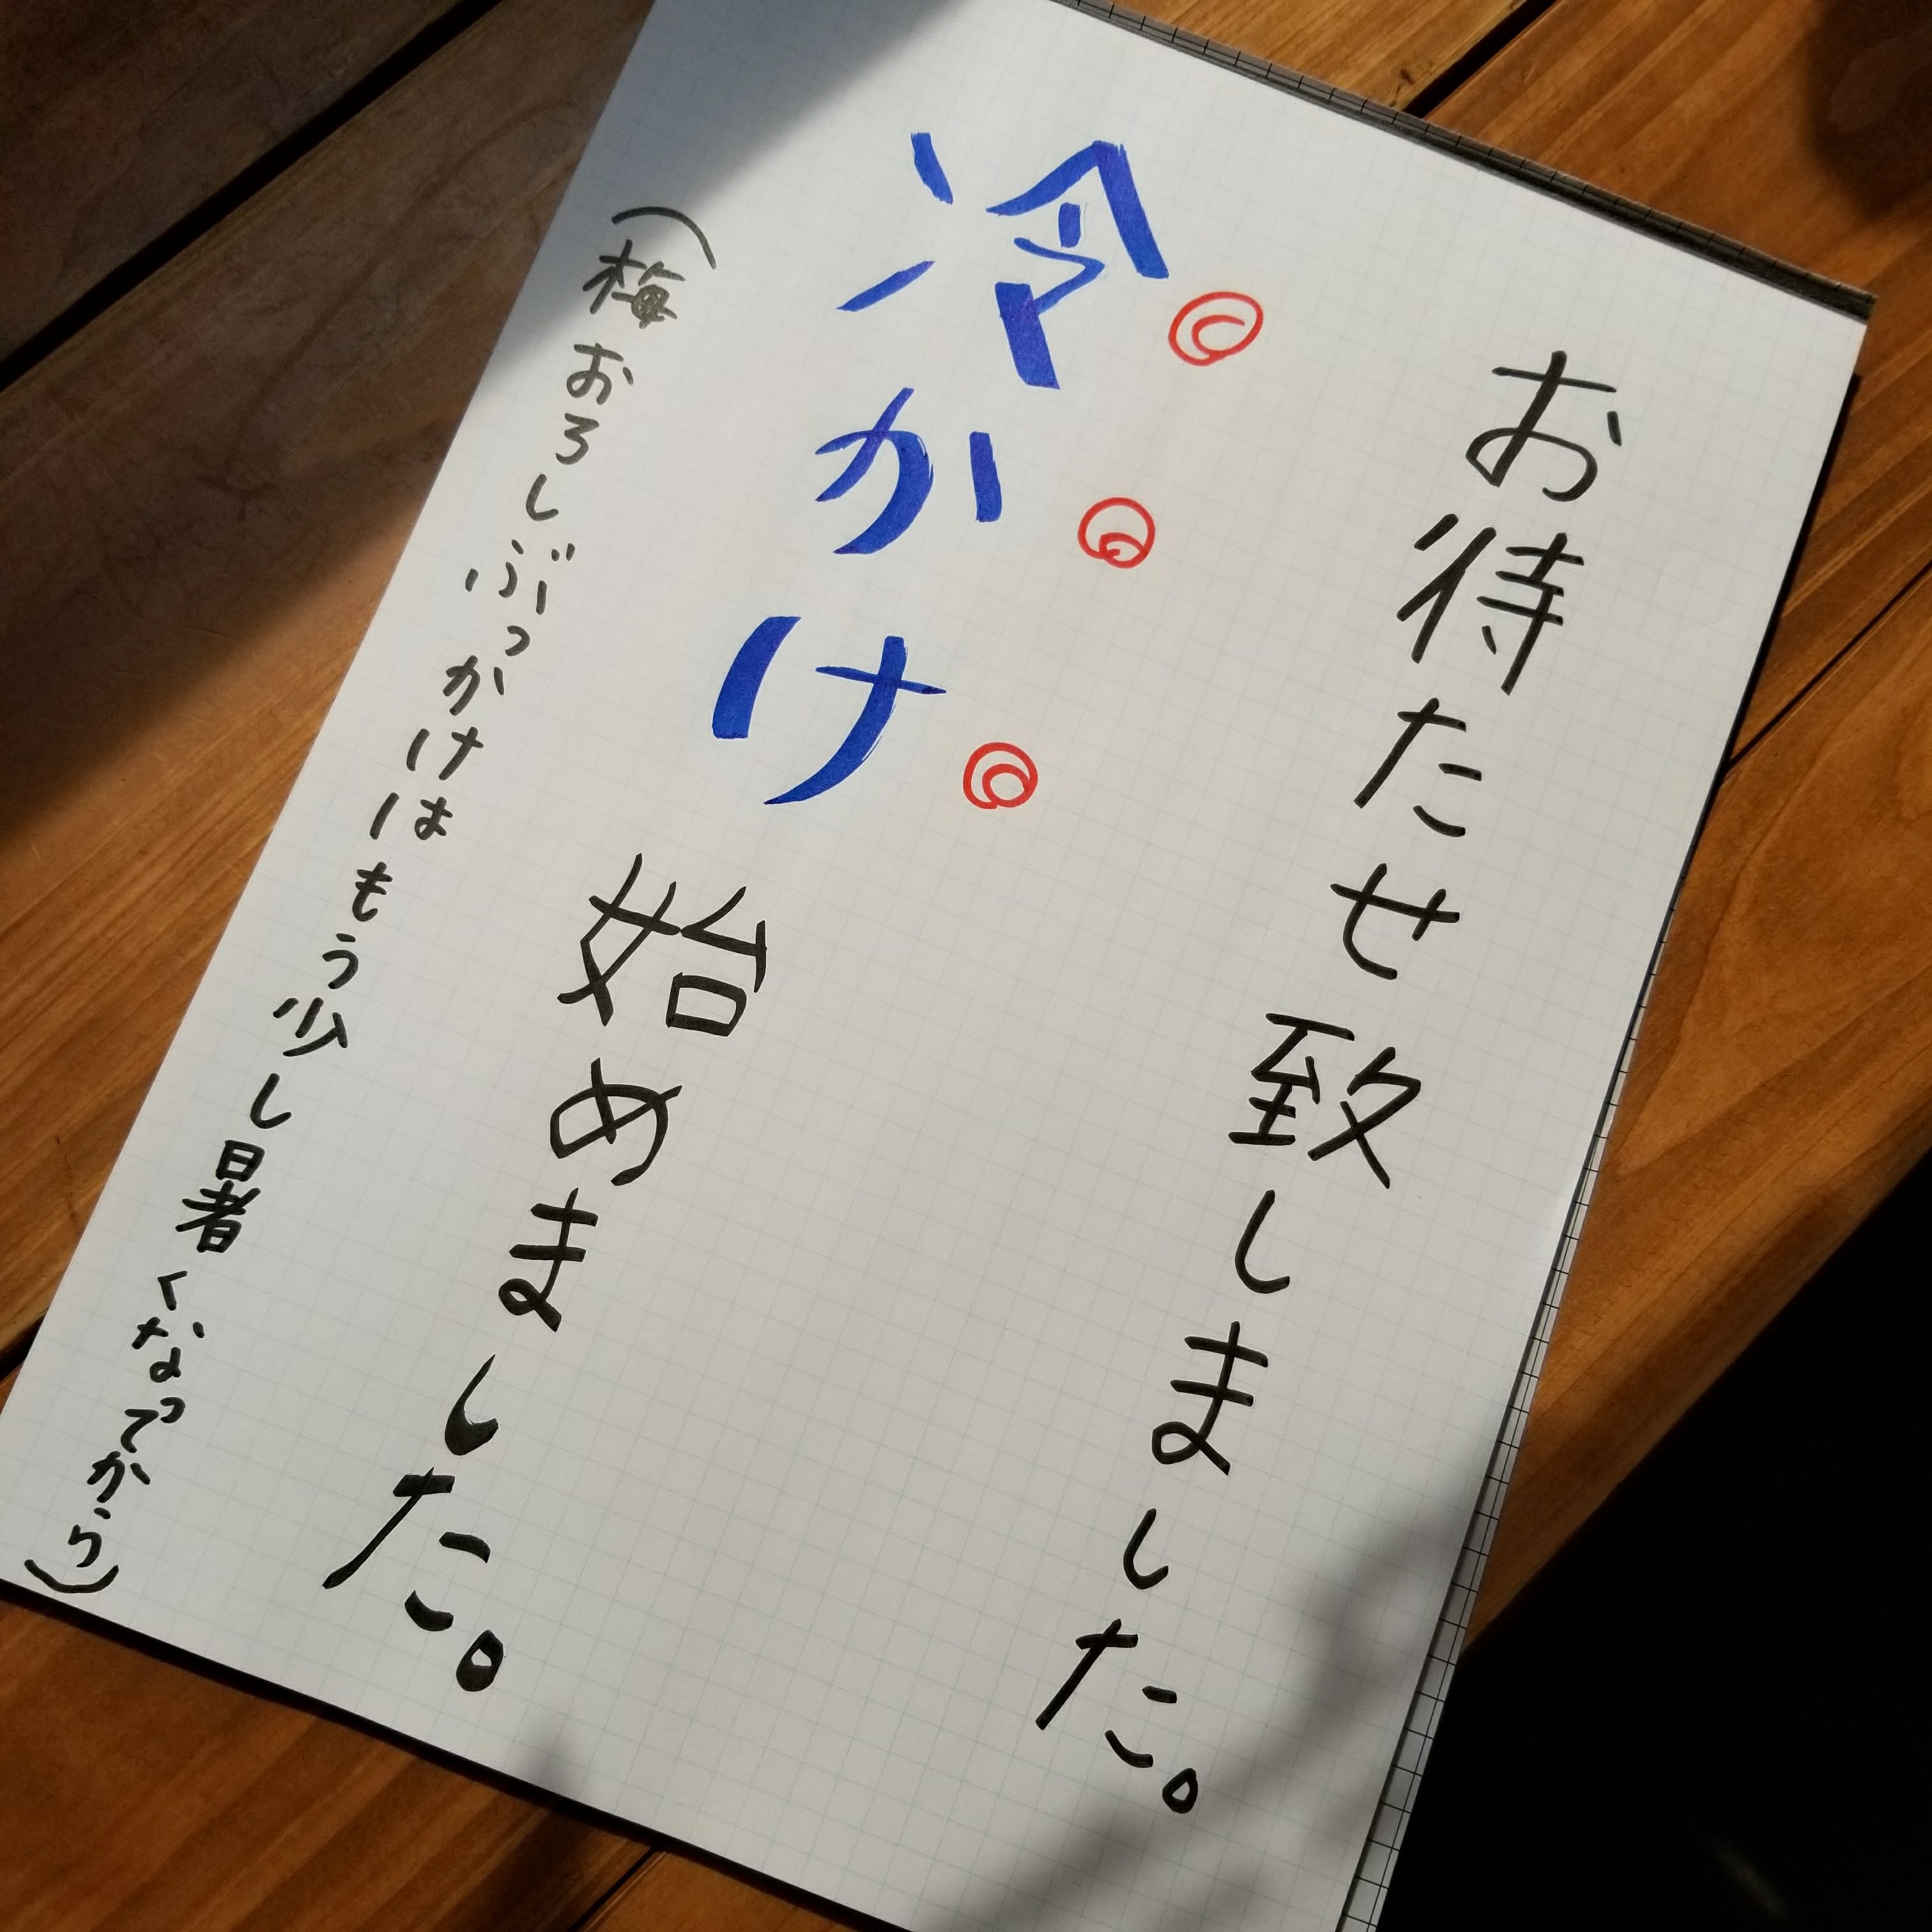 お待たせ致しました。
冷かけ始めました。
（梅おろしぶっかけはもう少し暑くなってから）